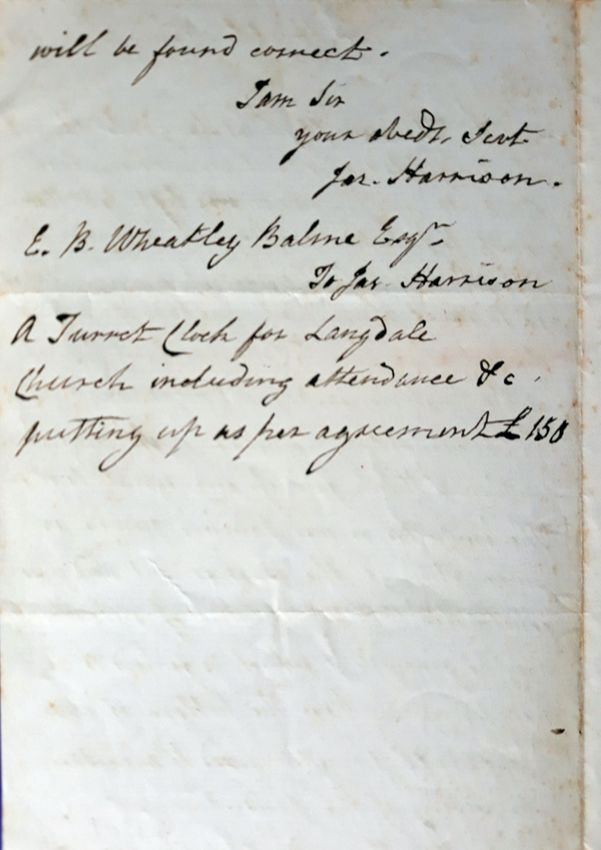 will be found correct.
I am Sir
your obedt. Servt.
Jas. Harrison.
E. B. Wheatley Balme Esqr.
To Jas. Harrison
A Turret Clock for Langdale
Church including attendance & c.
putting up as per agreement £150